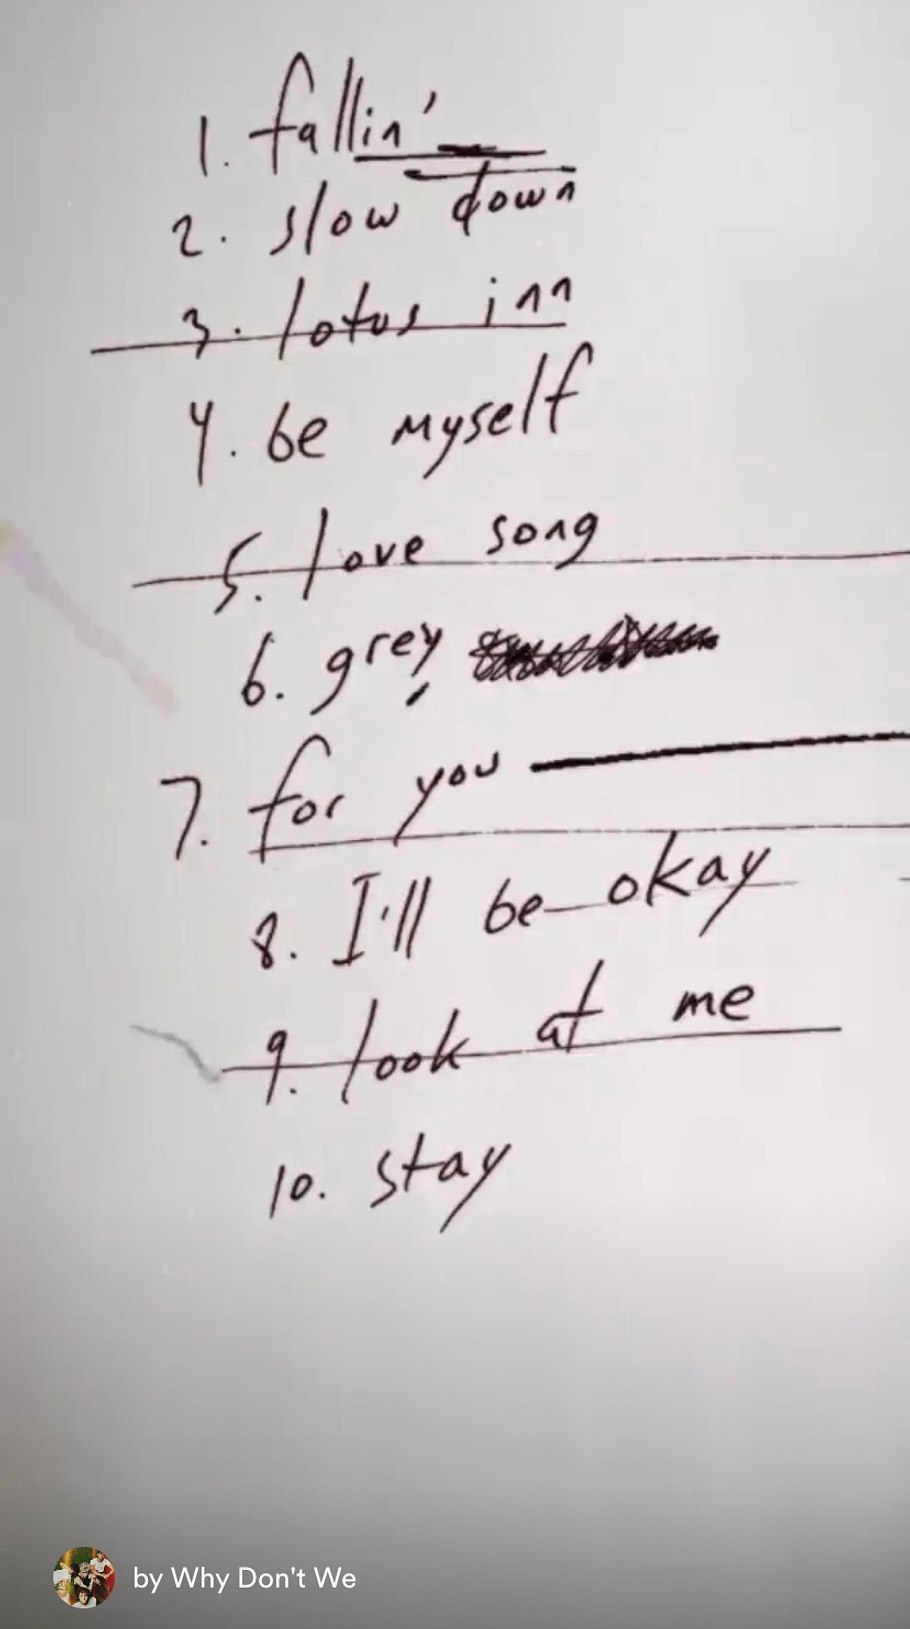 1. fallin'
2. slow down
3. lotus inn
4. be myself
5. love song
6. grey
7. for you
8. I'll be okay
9. look at me
10. stay
by Why Don't We